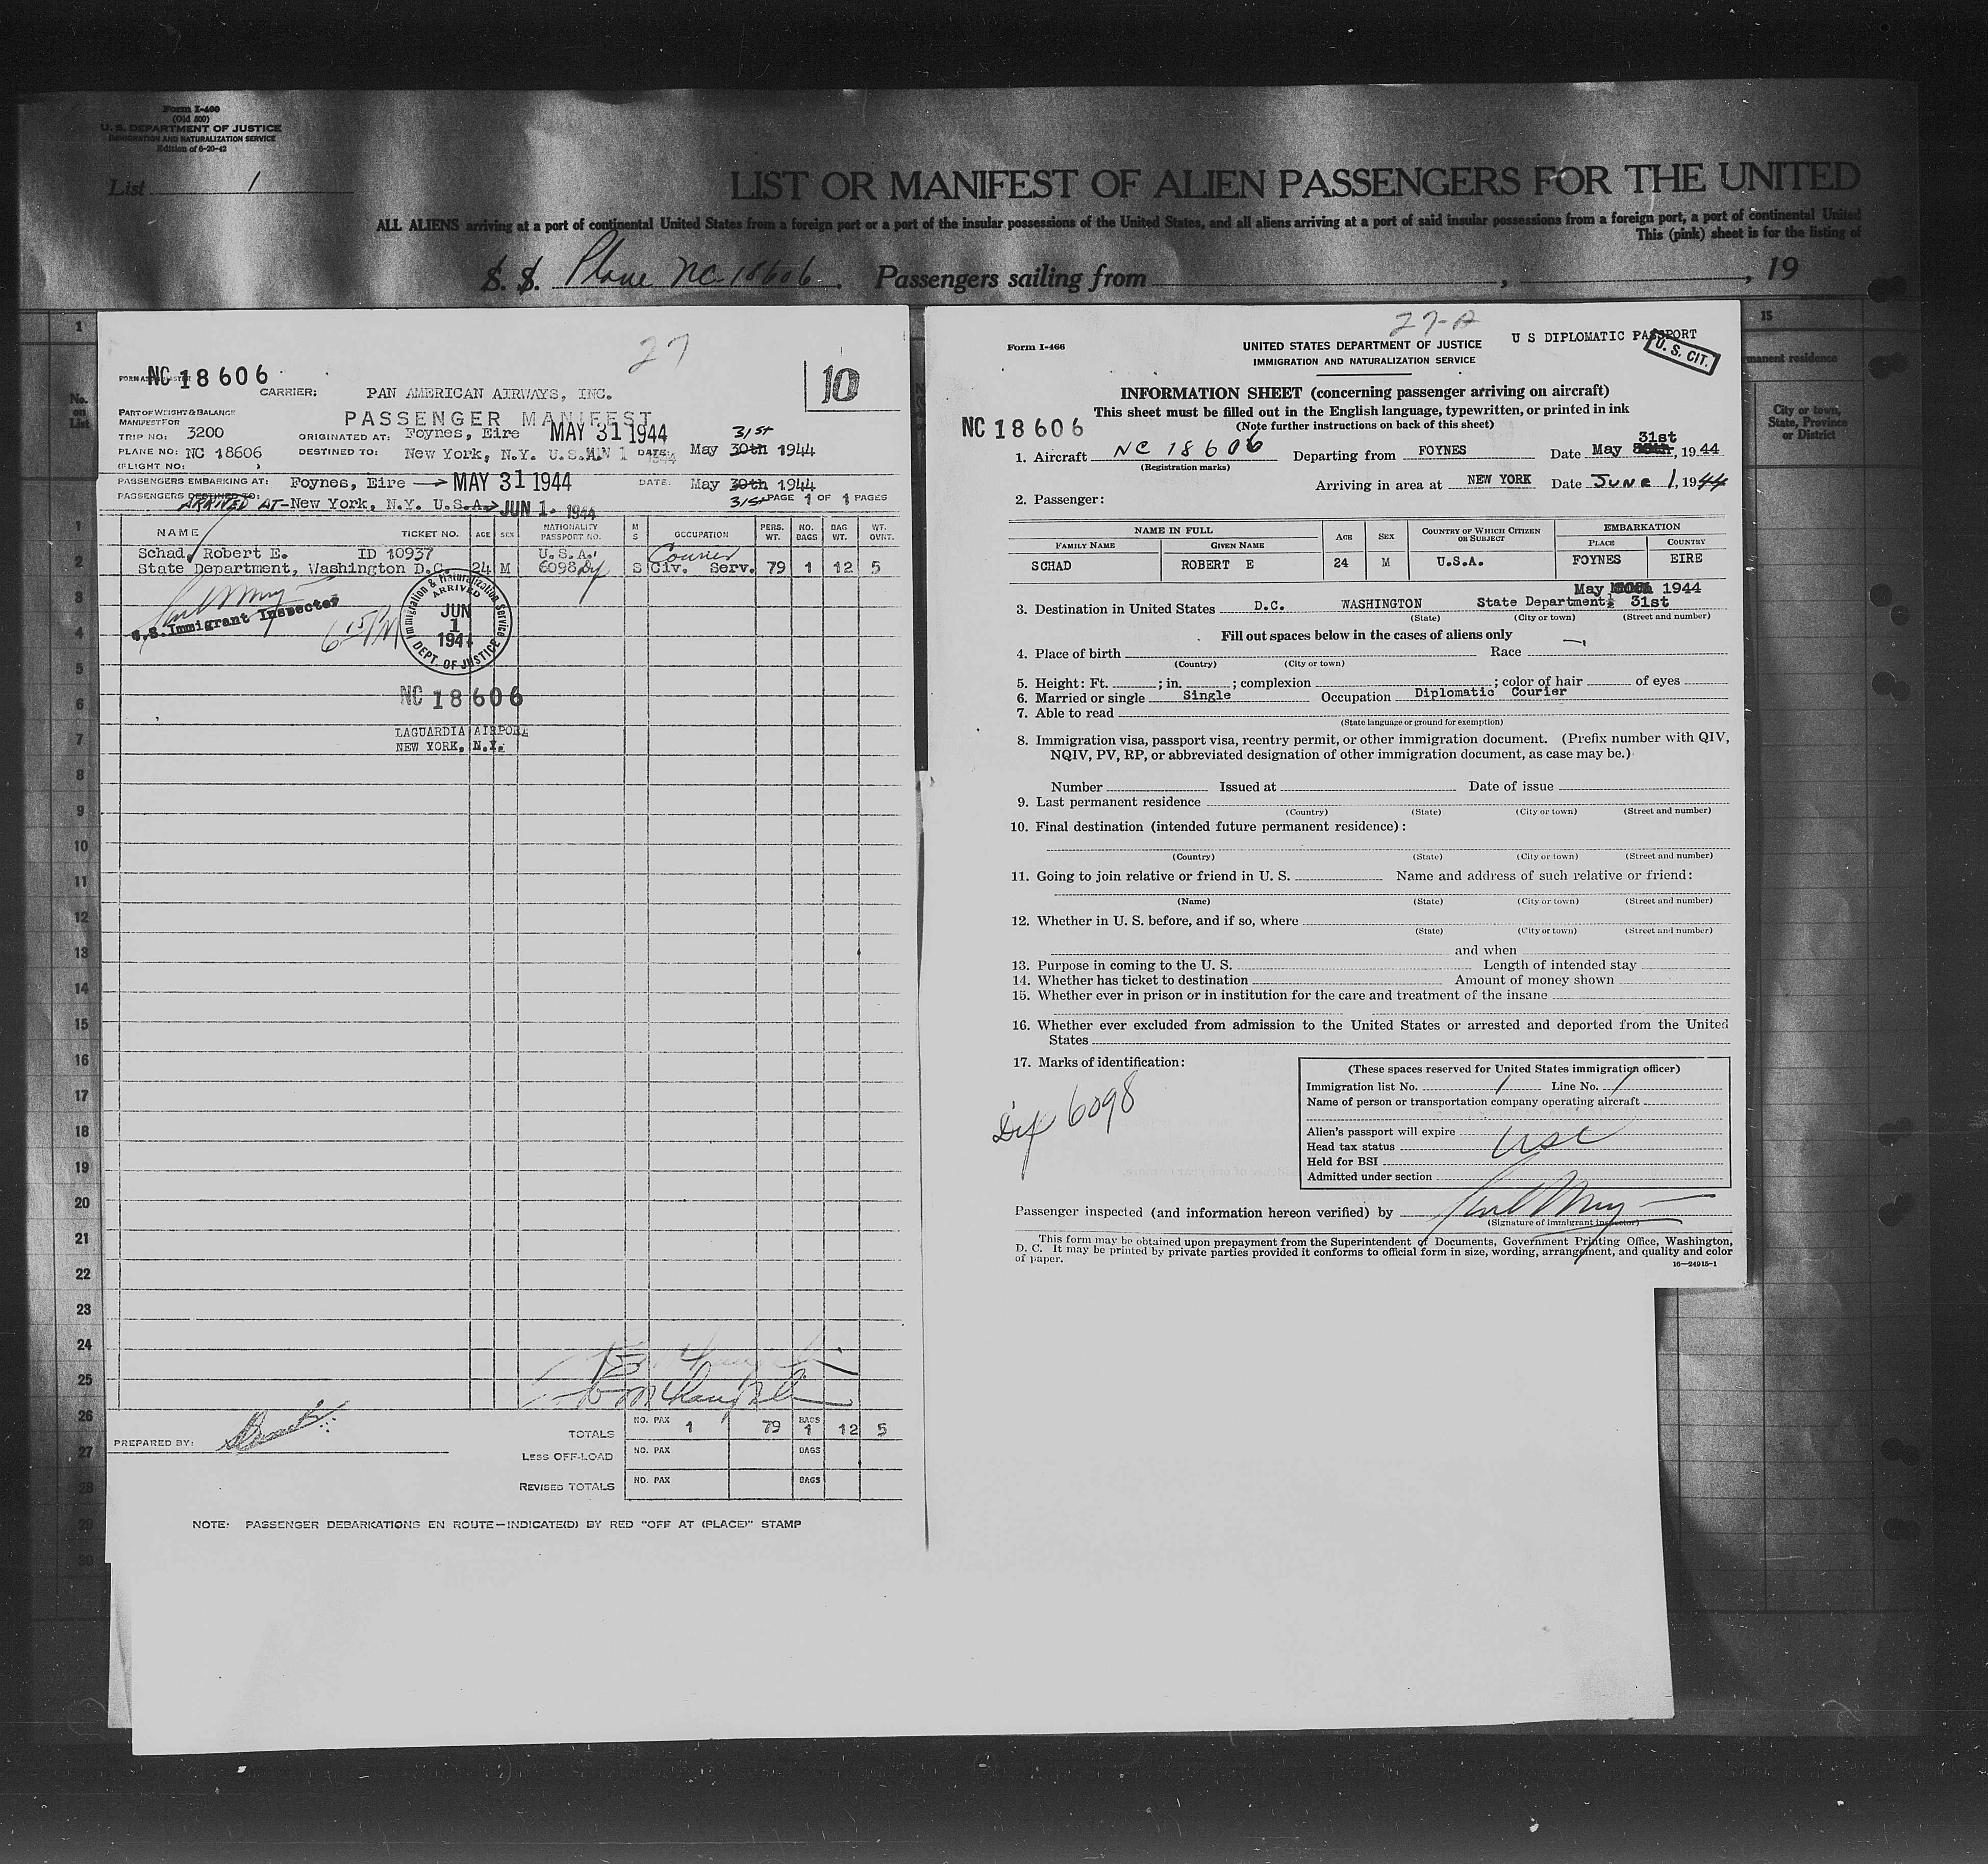 Form I-460
(Old 500)
U. S. DEPARTMENT OF JUSTICE
IMMIGRATION AND NATURALIZATION SERVICE
Edition of 6-20-42
List 1
LIST OR MANIFEST OF ALIEN PASSENGERS FOR THE UNITED
ALL ALIENS arriving at a port of continental United States from a foreign port or a part of the insular possessions of the United States, and all aliens arriving at a port of said insular possessions from a foreign port, a port of continental United
This (pink) sheet is for the listing of
S. S. Plane NC 18606. Passengers sailing from , , 19
No. on List
15
manent residence
City or town, State, Province or District
27
NC 18606
10
CARRIER: PAN AMERICAN AIRWAYS, INC.
PART OF WEIGHT & BALANCE
MANIFEST FOR
PASSENGER MANIFEST
TRIP NO: 3200 ORIGINATED AT: Foynes, Eire MAY 31 1944 31st
PLANE NO: NC 18606 DESTINED TO: New York, N.Y. U.S.A. JUN 1 1944 DATE: May 30th 1944
(FLIGHT NO: )
PASSENGERS EMBARKING AT: Foynes, Eire → MAY 31 1944 DATE: May 30th 1944
PASSENGERS DESTINED TO: ARRIVED AT - New York, N.Y. U.S.A. JUN 1 1944 31st PAGE 1 OF 1 PAGES
NAME TICKET NO. AGE SEX NATIONALITY PASSPORT NO. M S OCCUPATION PERS. WT. NO. BAGS BAG WT. WT. OVNT.
Schad, Robert E. ID 10937 U.S.A. Courier
State Department, Washington D.C. 24 M 6098 S Civ. Serv. 79 1 12 5
U.S. Immigrant Inspector
6 15 PM
Immigration & Naturalization Service
ARRIVED
JUN
1
1944
DEPT. OF JUSTICE
NC 18606
LAGUARDIA AIRPORT
NEW YORK, N.Y.
1
2
3
4
5
6
7
8
9
10
11
12
13
14
15
16
17
18
19
20
21
22
23
24
25
26
27
28
29
30
PREPARED BY:
TOTALS NO. PAX 1 79 BAGS 1 12 5
LESS OFF-LOAD NO. PAX BAGS
REVISED TOTALS NO. PAX BAGS
NOTE: PASSENGER DEBARKATIONS EN ROUTE—INDICATE(D) BY RED "OFF AT (PLACE)" STAMP
27-A
Form I-466
U S DIPLOMATIC PASSPORT
U. S. CIT.
UNITED STATES DEPARTMENT OF JUSTICE
IMMIGRATION AND NATURALIZATION SERVICE
INFORMATION SHEET (concerning passenger arriving on aircraft)
This sheet must be filled out in the English language, typewritten, or printed in ink
(Note further instructions on back of this sheet)
NC 18606
1. Aircraft NC 18606 Departing from FOYNES Date May 31st, 1944
(Registration marks)
Arriving in area at NEW YORK Date JUNE 1, 1944
2. Passenger:
NAME IN FULL AGE SEX COUNTRY OF WHICH CITIZEN OR SUBJECT EMBARKATION
FAMILY NAME GIVEN NAME PLACE COUNTRY
SCHAD ROBERT E 24 M U.S.A. FOYNES EIRE
May 1944
3. Destination in United States D.C. WASHINGTON State Department 31st
(State) (City or town) (Street and number)
Fill out spaces below in the cases of aliens only
4. Place of birth Race
(Country) (City or town)
5. Height: Ft. ; in. ; complexion ; color of hair of eyes
6. Married or single Single Occupation Diplomatic Courier
7. Able to read
(State language or ground for exemption)
8. Immigration visa, passport visa, reentry permit, or other immigration document. (Prefix number with QIV,
NQIV, PV, RP, or abbreviated designation of other immigration document, as case may be.)
Number Issued at Date of issue
9. Last permanent residence
(Country) (State) (City or town) (Street and number)
10. Final destination (intended future permanent residence):
(Country) (State) (City or town) (Street and number)
11. Going to join relative or friend in U. S. Name and address of such relative or friend:
(Name) (State) (City or town) (Street and number)
12. Whether in U. S. before, and if so, where
(State) (City or town) (Street and number)
and when
13. Purpose in coming to the U. S. Length of intended stay
14. Whether has ticket to destination Amount of money shown
15. Whether ever in prison or in institution for the care and treatment of the insane
16. Whether ever excluded from admission to the United States or arrested and deported from the United
States
17. Marks of identification:
6098
(These spaces reserved for United States immigration officer)
Immigration list No. 1 Line No. 1
Name of person or transportation company operating aircraft
Alien's passport will expire
Head tax status USC
Held for BSI
Admitted under section
Passenger inspected (and information hereon verified) by
(Signature of immigrant inspector)
This form may be obtained upon prepayment from the Superintendent of Documents, Government Printing Office, Washington,
D. C. It may be printed by private parties provided it conforms to official form in size, wording, arrangement, and quality and color
of paper.
16—24915-1